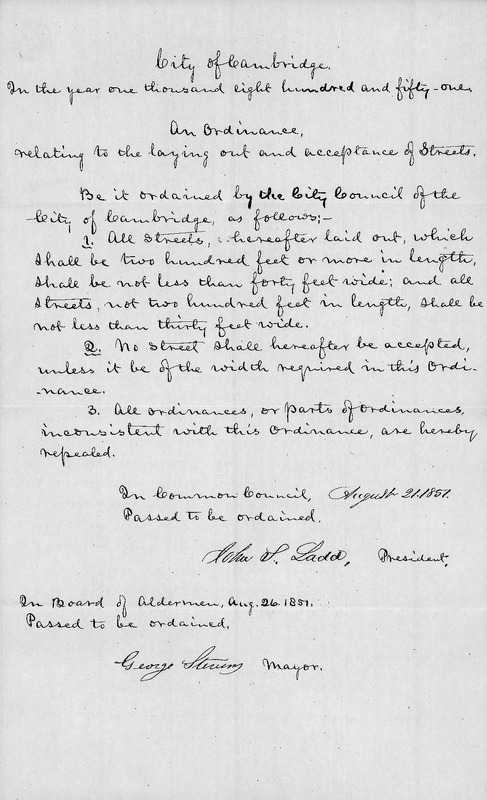 City of Cambridge.
In the year one thousand eight hundred and fifty-one.
An Ordinance,
relating to the laying out and acceptance of Streets.
Be it ordained by the City Council of the
City of Cambridge, as follows:-
1. All Streets, hereafter laid out, which
shall be two hundred feet or more in length,
shall be not less than forty feet wide; and all
streets, not two hundred feet in length, shall be
not less than thirty feet wide.
2. No Street shall hereafter be accepted,
unless it be of the width required in this Ordi-
-nance.
3. All ordinances, or parts of ordinances,
inconsistent with this Ordinance, are hereby
repealed.
In Common Council, August 21. 1851.
Passed to be ordained.
John S. Ladd, President.
In Board of Aldermen, Aug. 26. 1851.
Passed to be ordained,
George Stevens Mayor.